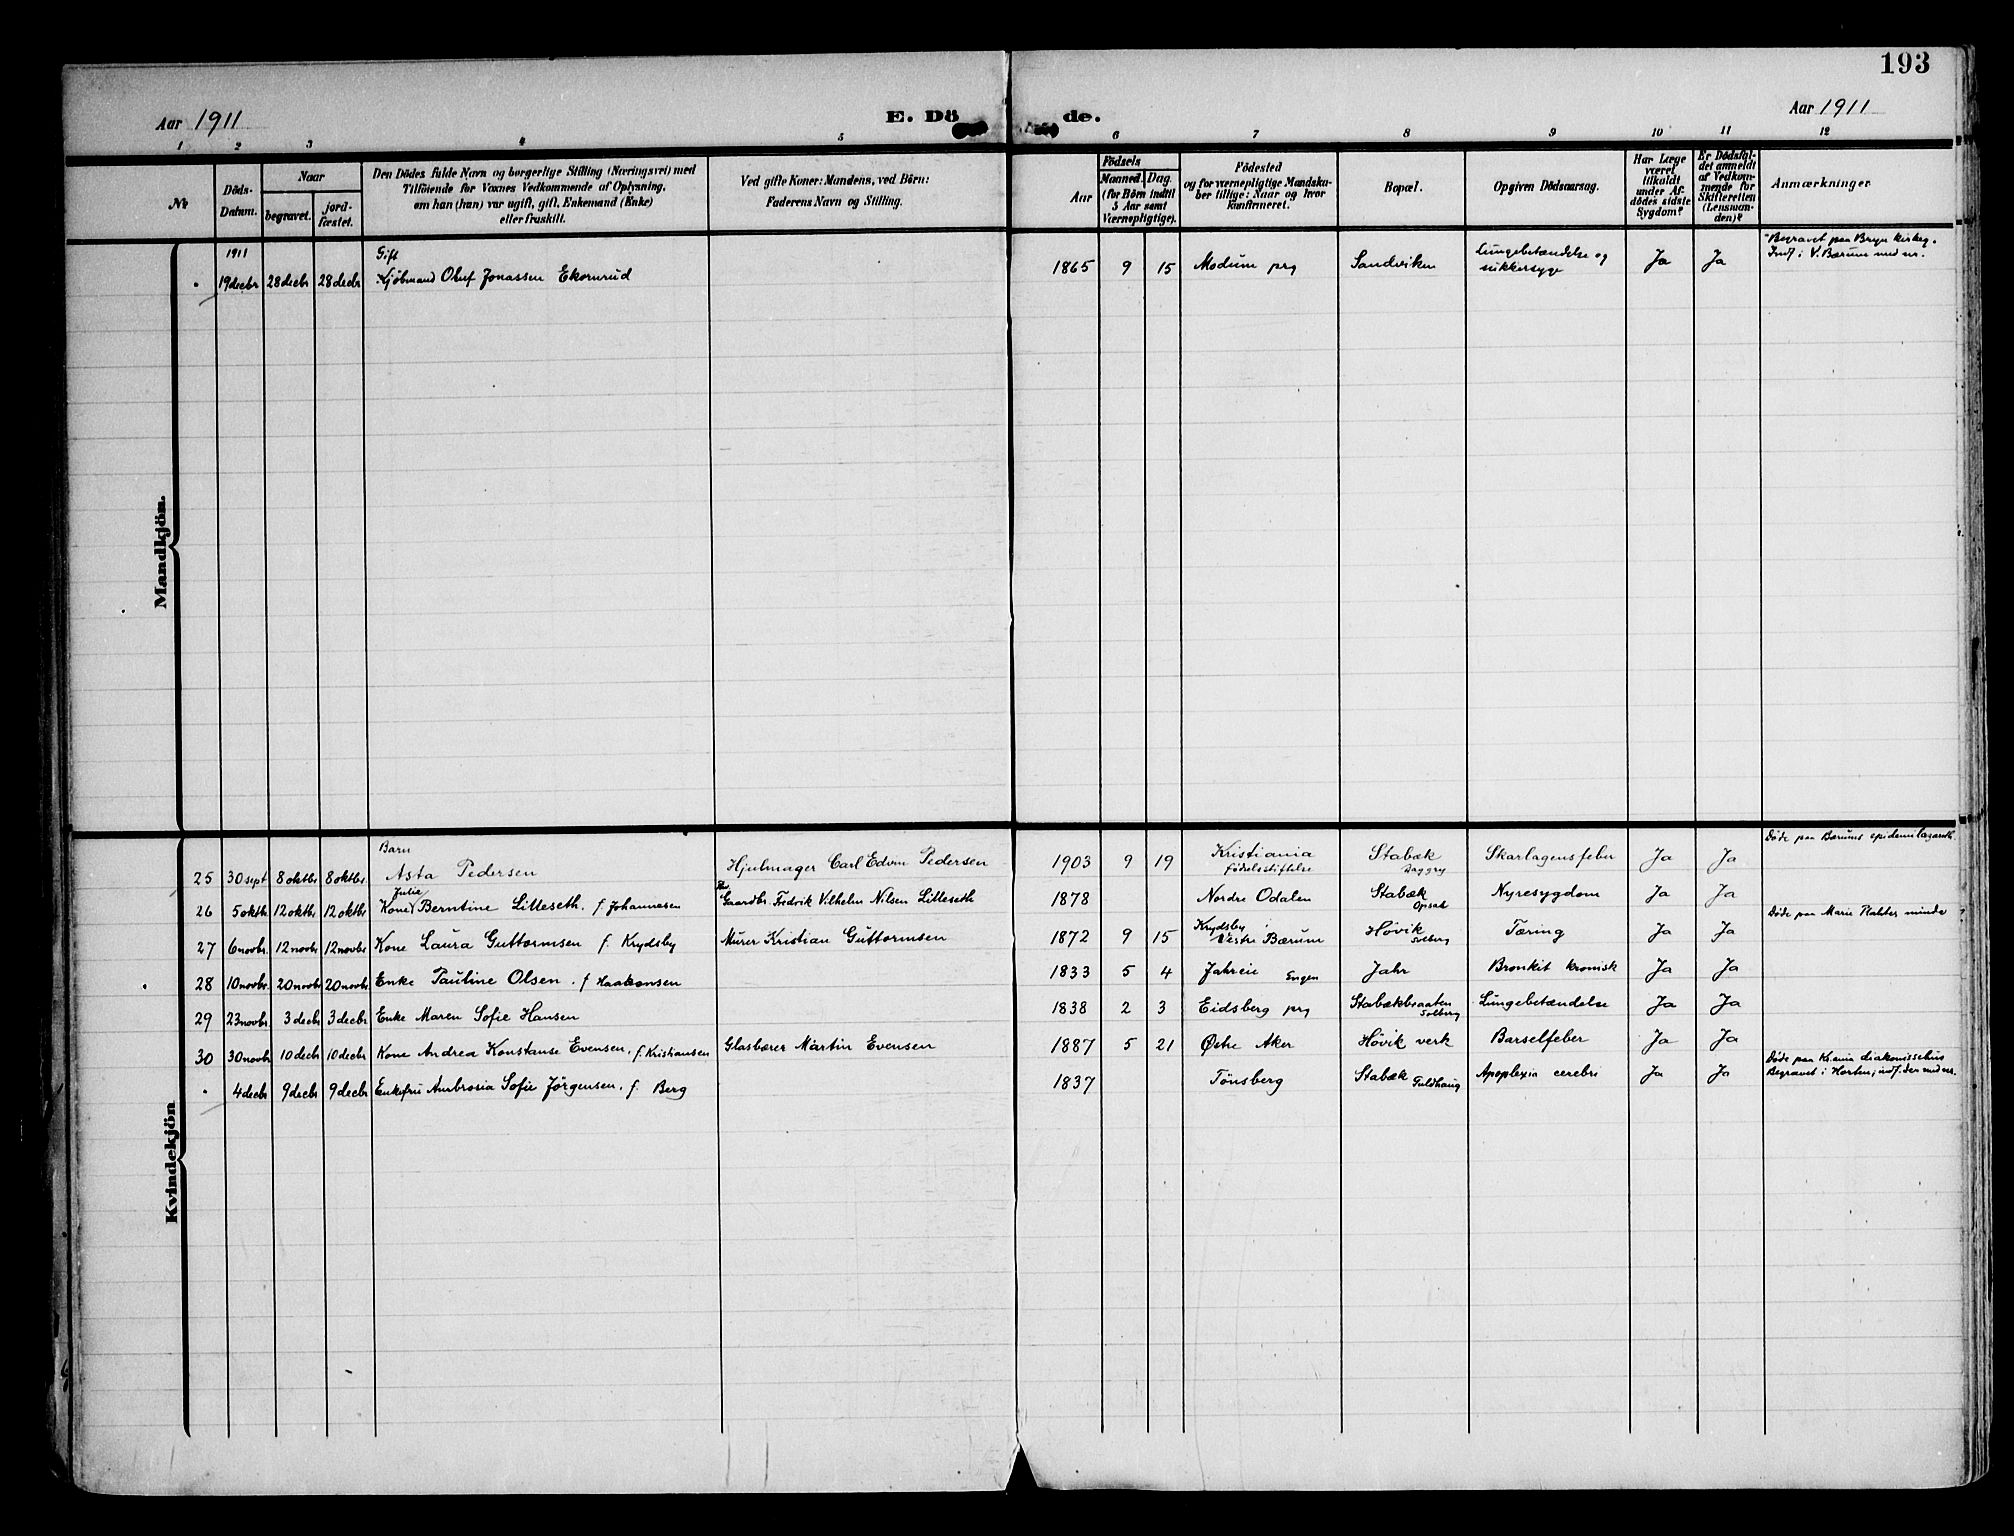 193
Aar 1911
E. Dö de.
Aar 1911
1 2 3 4 5 6 7 8 9 10 11 12
No
Döds-
Datum.
Naar
begravet.
jord-
fæstet.
Den Dödes fulde Navn og borgerlige Stilling (Næringsvei) med
Tilföiende for Voxnes Vedkommende af Oplysning,
om han (hun) var ugift, gift, Enkemand (Enke)
eller fraskilt.
Ved gifte Koner: Mandens, ved Börn:
Faderens Navn og Stilling.
Aar
Födsels
Maaned. Dag.
(for Börn indtil
5 Aar samt
Værnepligtige).
Födested
og for værnepligtige Mandska-
ber tillige: Naar og hvor
konfirmeret.
Bopæl.
Opgiven Dödsaarsag.
Har Læge
været
tilkaldt
under Af-
dödes sidste
Sygdom?
Er Dödsfal-
det anmeldt
af Vedkom-
mende for
Skifteretten
(Lensman-
den)?
Anmærkninger
Mandkjön.
1911 Gift Lungebetændelse og Begravet paa Bryn kirkeg.
19 decbr 28 decbr 28 decbr Kjöbmand Oluf Jonassen Ekornrud 1865 9 15 Modum prg Sandviken sukkersyge Ja Ja Indf. i V. Bærum med nr.
Kvindekjön
Barn Døde paa Bærums epidemilazareth
25 30 sept 8 oktbr 8 oktbr. Asta Pedersen Hjulmager Carl Edvin Pedersen 1903 9 19 Kristiania fødselsstiftelse Stabæk Daggry Skarlagensfeber Ja Ja
Julie
26 5 oktb 12 oktbr 12 oktbr Kone Berntine Lilleseth. f. Johannesen Gaardbr. Fredrik Vilhelm Nilsen Lilleseth 1878 Nordre Odalen Stabæk Opsal Nyresygdom Ja Ja
Døde paa Marie Plahter minde
27 6 novbr. 12 novbr 12 novbr Kone Laura Guttormsen f. Krydsby Murer Kristian Guttormsen 1872 9 15 Krydsby i Vestre Bærum Høvik Solberg Tæring Ja Ja
28 10 novbr. 20 novbr 20 novbr Enke Pauline Olsen. f Haakonsen 1833 5 4 Jahren Engen Jahr Bronkit kronisk Ja Ja
29 23 novbr 3 decbr 3 decbr Enke Maren Sofie Hansen 1838 2 3 Eidsberg prg Stabækbraaten Solberg Lungebetændelse Ja Ja
30 30 novbr 10 decbr 10 decbr Kone Andrea Konstanse Evensen. f. Kristiansen Glasbærer Martin Evensen 1887 5 21 Østre Aker Høvik verk Barselfeber Ja Ja
Døde paa Kr.ania diakonissehus
4 decbr 9 decbr 9 decbr Enkefru Ambrosia Sofie Jörgensen. f. Berg 1837 Tönsberg Stabæk Fuldhaug Apoplexia cerebri Ja Ja Begravet i Horten; indf. der med nr.